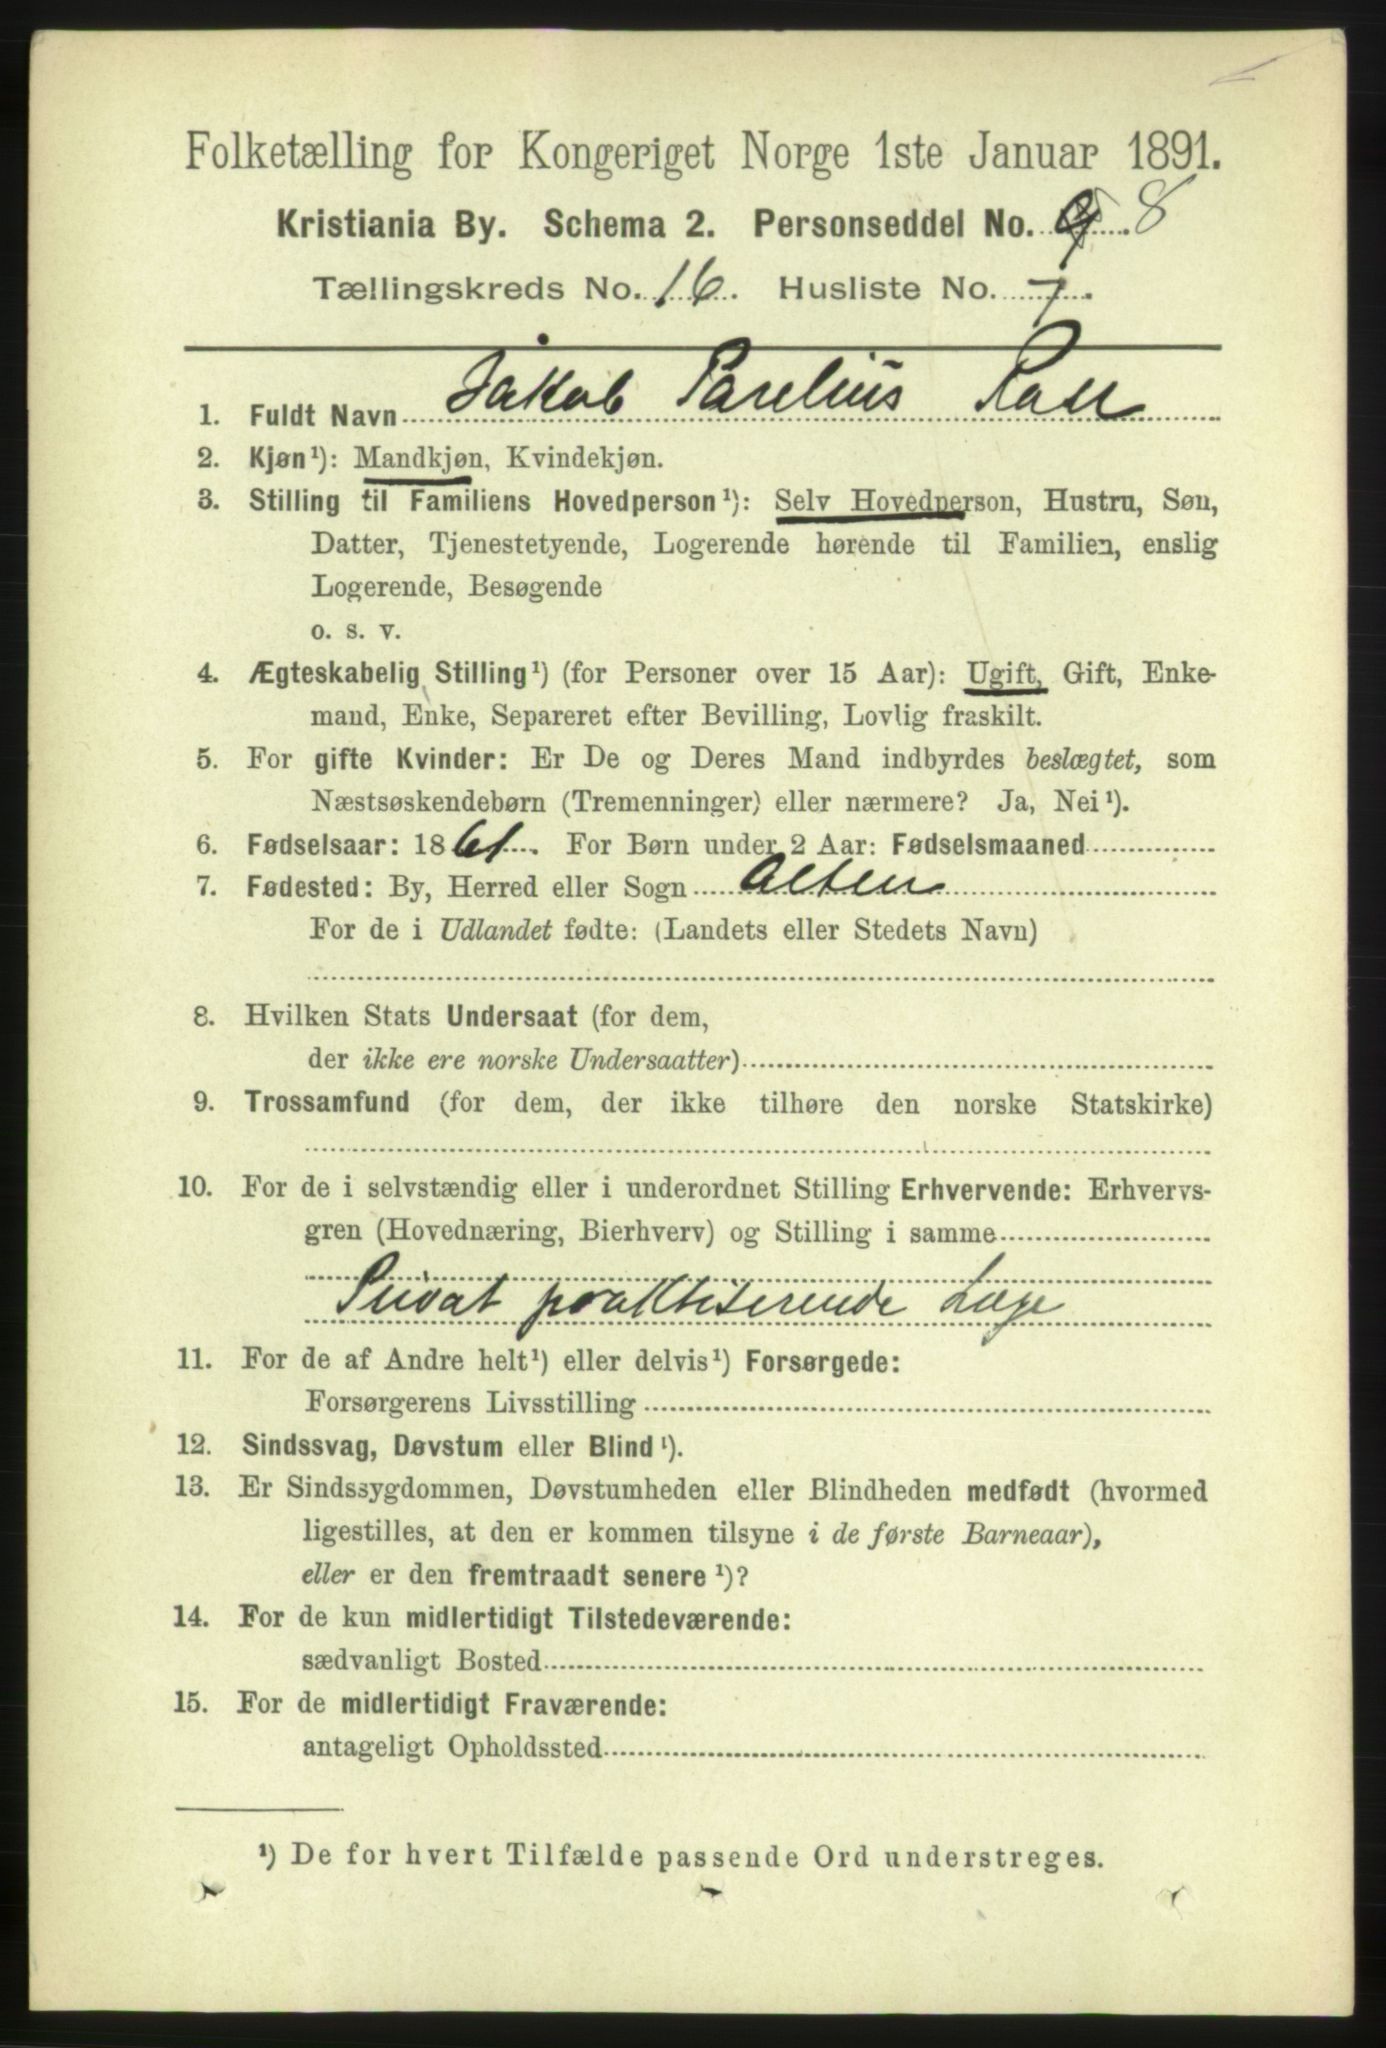 Folketælling for Kongeriget Norge 1ste Januar 1891.
Kristiania By. Schema 2. Personseddel No. 8
Tællingskreds No. 16. Husliste No. 7.
1. Fuldt Navn Jakob Parelius
2. Kjøn¹): Mandkjøn, Kvindekjøn.
3. Stilling til Familiens Hovedperson¹): Selv Hovedperson, Hustru, Søn,
Datter, Tjenestetyende, Logerende hørende til Familien, enslig
Logerende, Besøgende
o. s. v.
4. Ægteskabelig Stilling¹) (for Personer over 15 Aar): Ugift, Gift, Enke-
mand, Enke, Separeret efter Bevilling, Lovlig fraskilt.
5. For gifte Kvinder: Er De og Deres Mand indbyrdes beslægtet, som
Næstsøskendebørn (Tremenninger) eller nærmere? Ja, Nei¹).
6. Fødselsaar: 1861. For Børn under 2 Aar: Fødselsmaaned
7. Fødested: By, Herred eller Sogn Alten
For de i Udlandet fødte: (Landets eller Stedets Navn)
8. Hvilken Stats Undersaat (for dem,
der ikke ere norske Undersaatter)
9. Trossamfund (for dem, der ikke tilhøre den norske Statskirke)
10. For de i selvstændig eller i underordnet Stilling Erhvervende: Erhvervs-
gren (Hovednæring, Bierhverv) og Stilling i samme
Privat praktiserende Læge
11. For de af Andre helt¹) eller delvis¹) Forsørgede:
Forsørgerens Livsstilling
12. Sindssvag, Døvstum eller Blind¹).
13. Er Sindssygdommen, Døvstumheden eller Blindheden medfødt (hvormed
ligestilles, at den er kommen tilsyne i de første Barneaar),
eller er den fremtraadt senere¹)?
14. For de kun midlertidigt Tilstedeværende:
sædvanligt Bosted
15. For de midlertidigt Fraværende:
antageligt Opholdssted
¹) De for hvert Tilfælde passende Ord understreges.